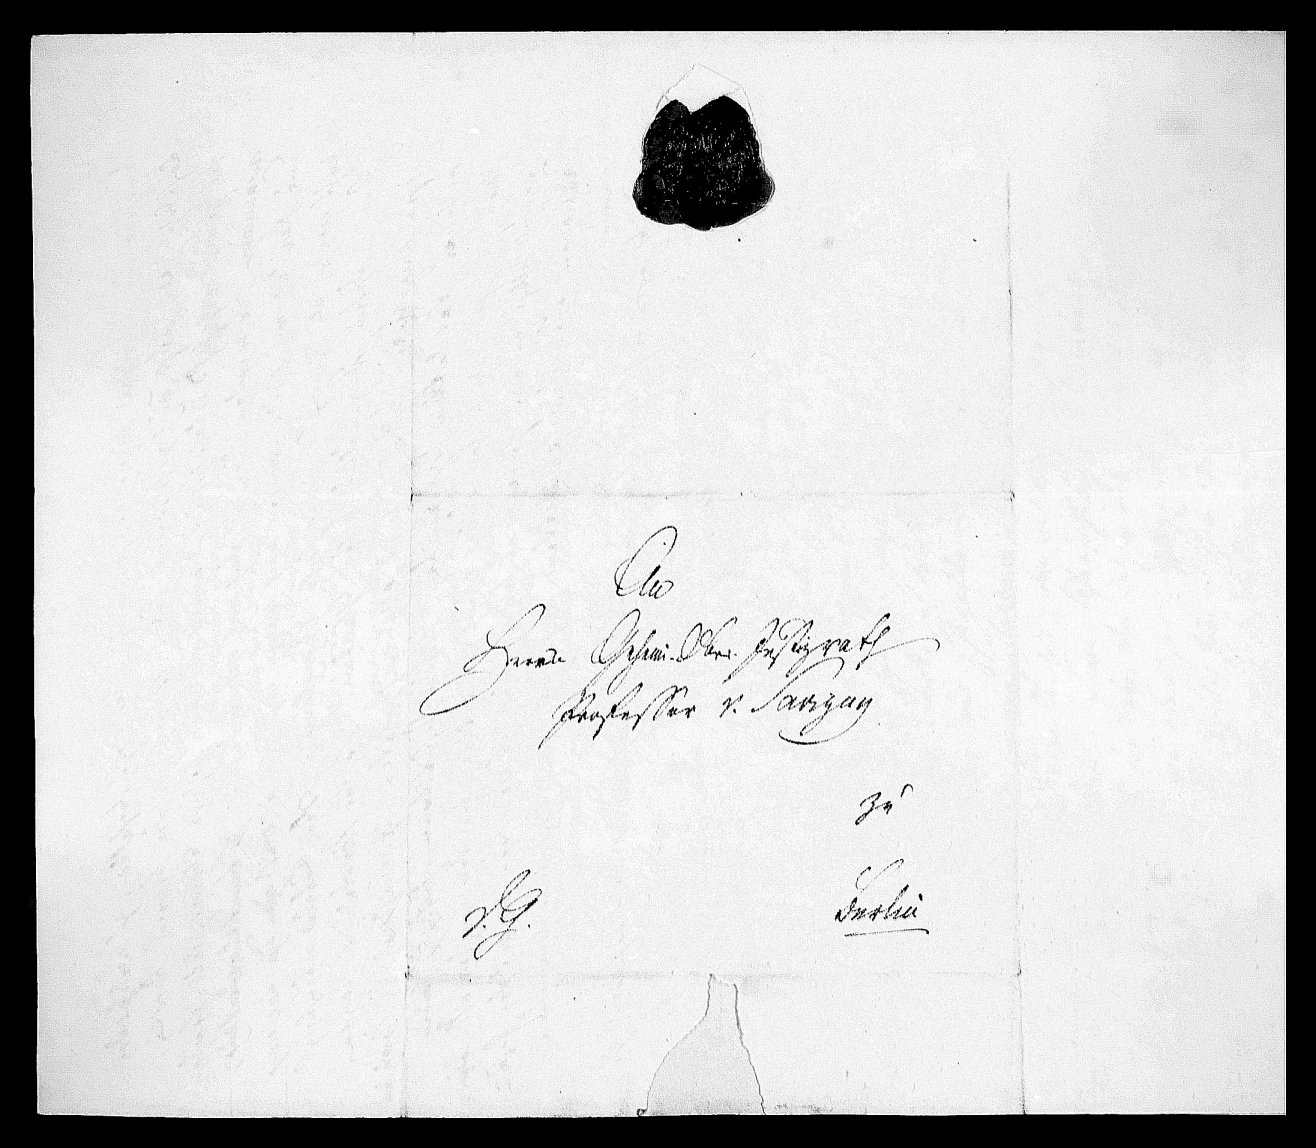 An
Herrn Geheim. Ober. Justizrath
Professor v. Savigny
zu
Berlin
d. G.